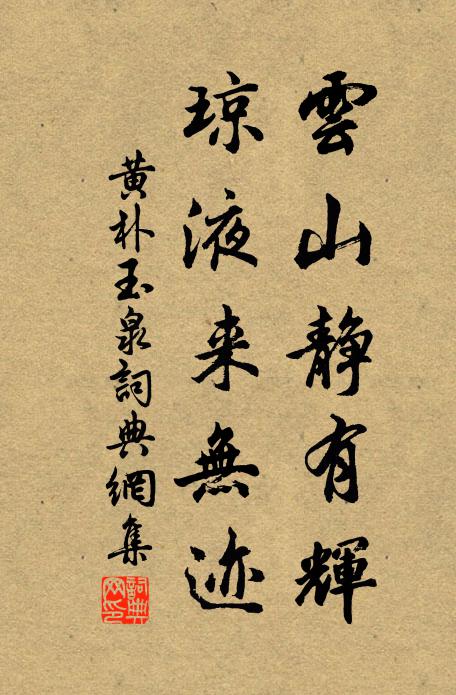 雲山靜有輝
琼液来無迹
黄朴玉泉詞典網集
詞典网印